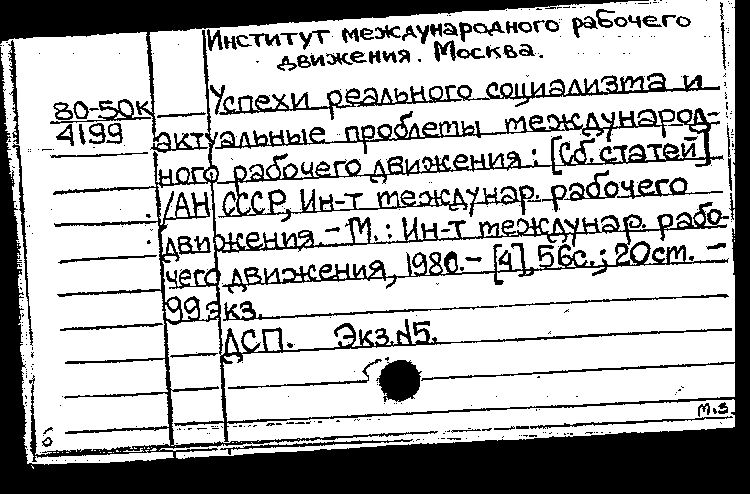 Институт международного рабочего
движения. Москва.
80-50к
4199
Успехи реального социализма и
актуальные проблемы международ-
ного рабочего движения: [Сб. статей]
/АН СССР, Ин-т междунар. рабочего
движения. - М.: Ин-т междунар. рабо-
чего движения, 1980. - [4], 56с.; 20см. -
99 экз.
ДСП. Экз. №5.
м.з.
б